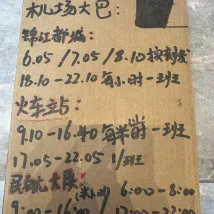 机场大巴:
锦江都城:
6.05/7.05/8.10 按刻发
18.10-22.10 每小时一班
火车立占:
9.10-16.40 每半时一班
17.05-22.05 1/班
民航大厦 6:00-8:00
9:00-16:00 17:00-22:00